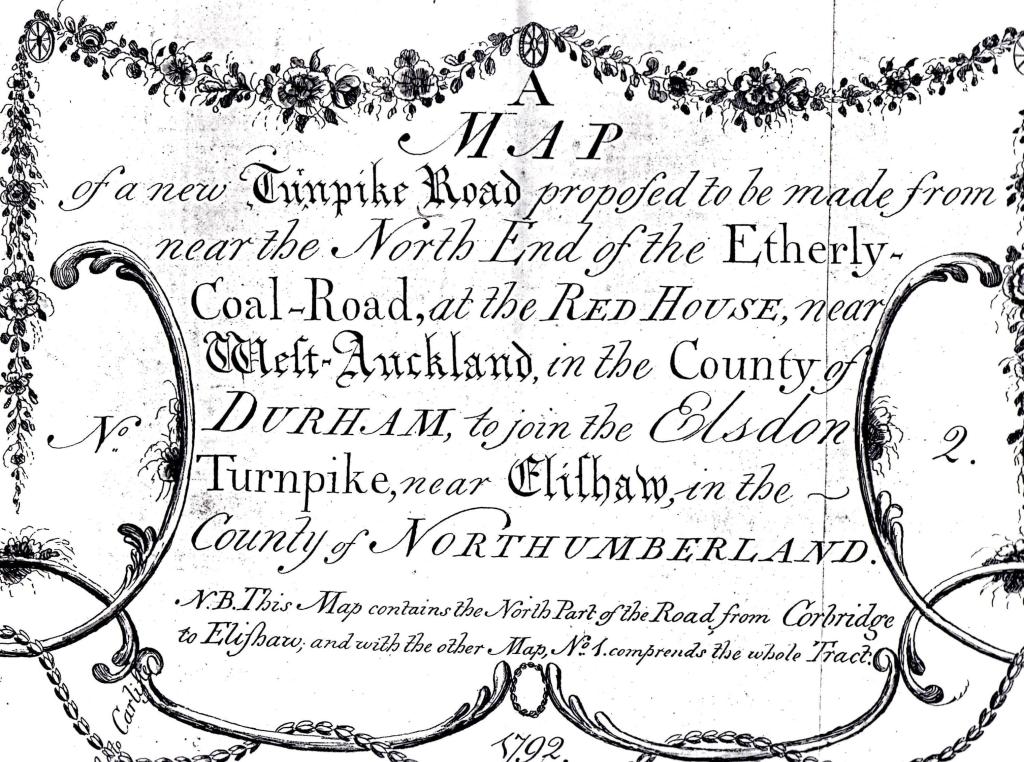 A
MAP
of a new Tunpike Road proposed to be made from
near the North End of the Etherly-
Coal-Road, at the RED HOUSE, near
West-Auckland, in the County of
DURHAM, to join the Elsdon
Turnpike, near Elishaw, in the
County of NORTHUMBERLAND.
No. 2.
N.B. This Map contains the North Part of the Road, from Corbridge
to Elishaw; and with the other Map, No. 1. comprends the whole Tract.
to Carlisle
1792.